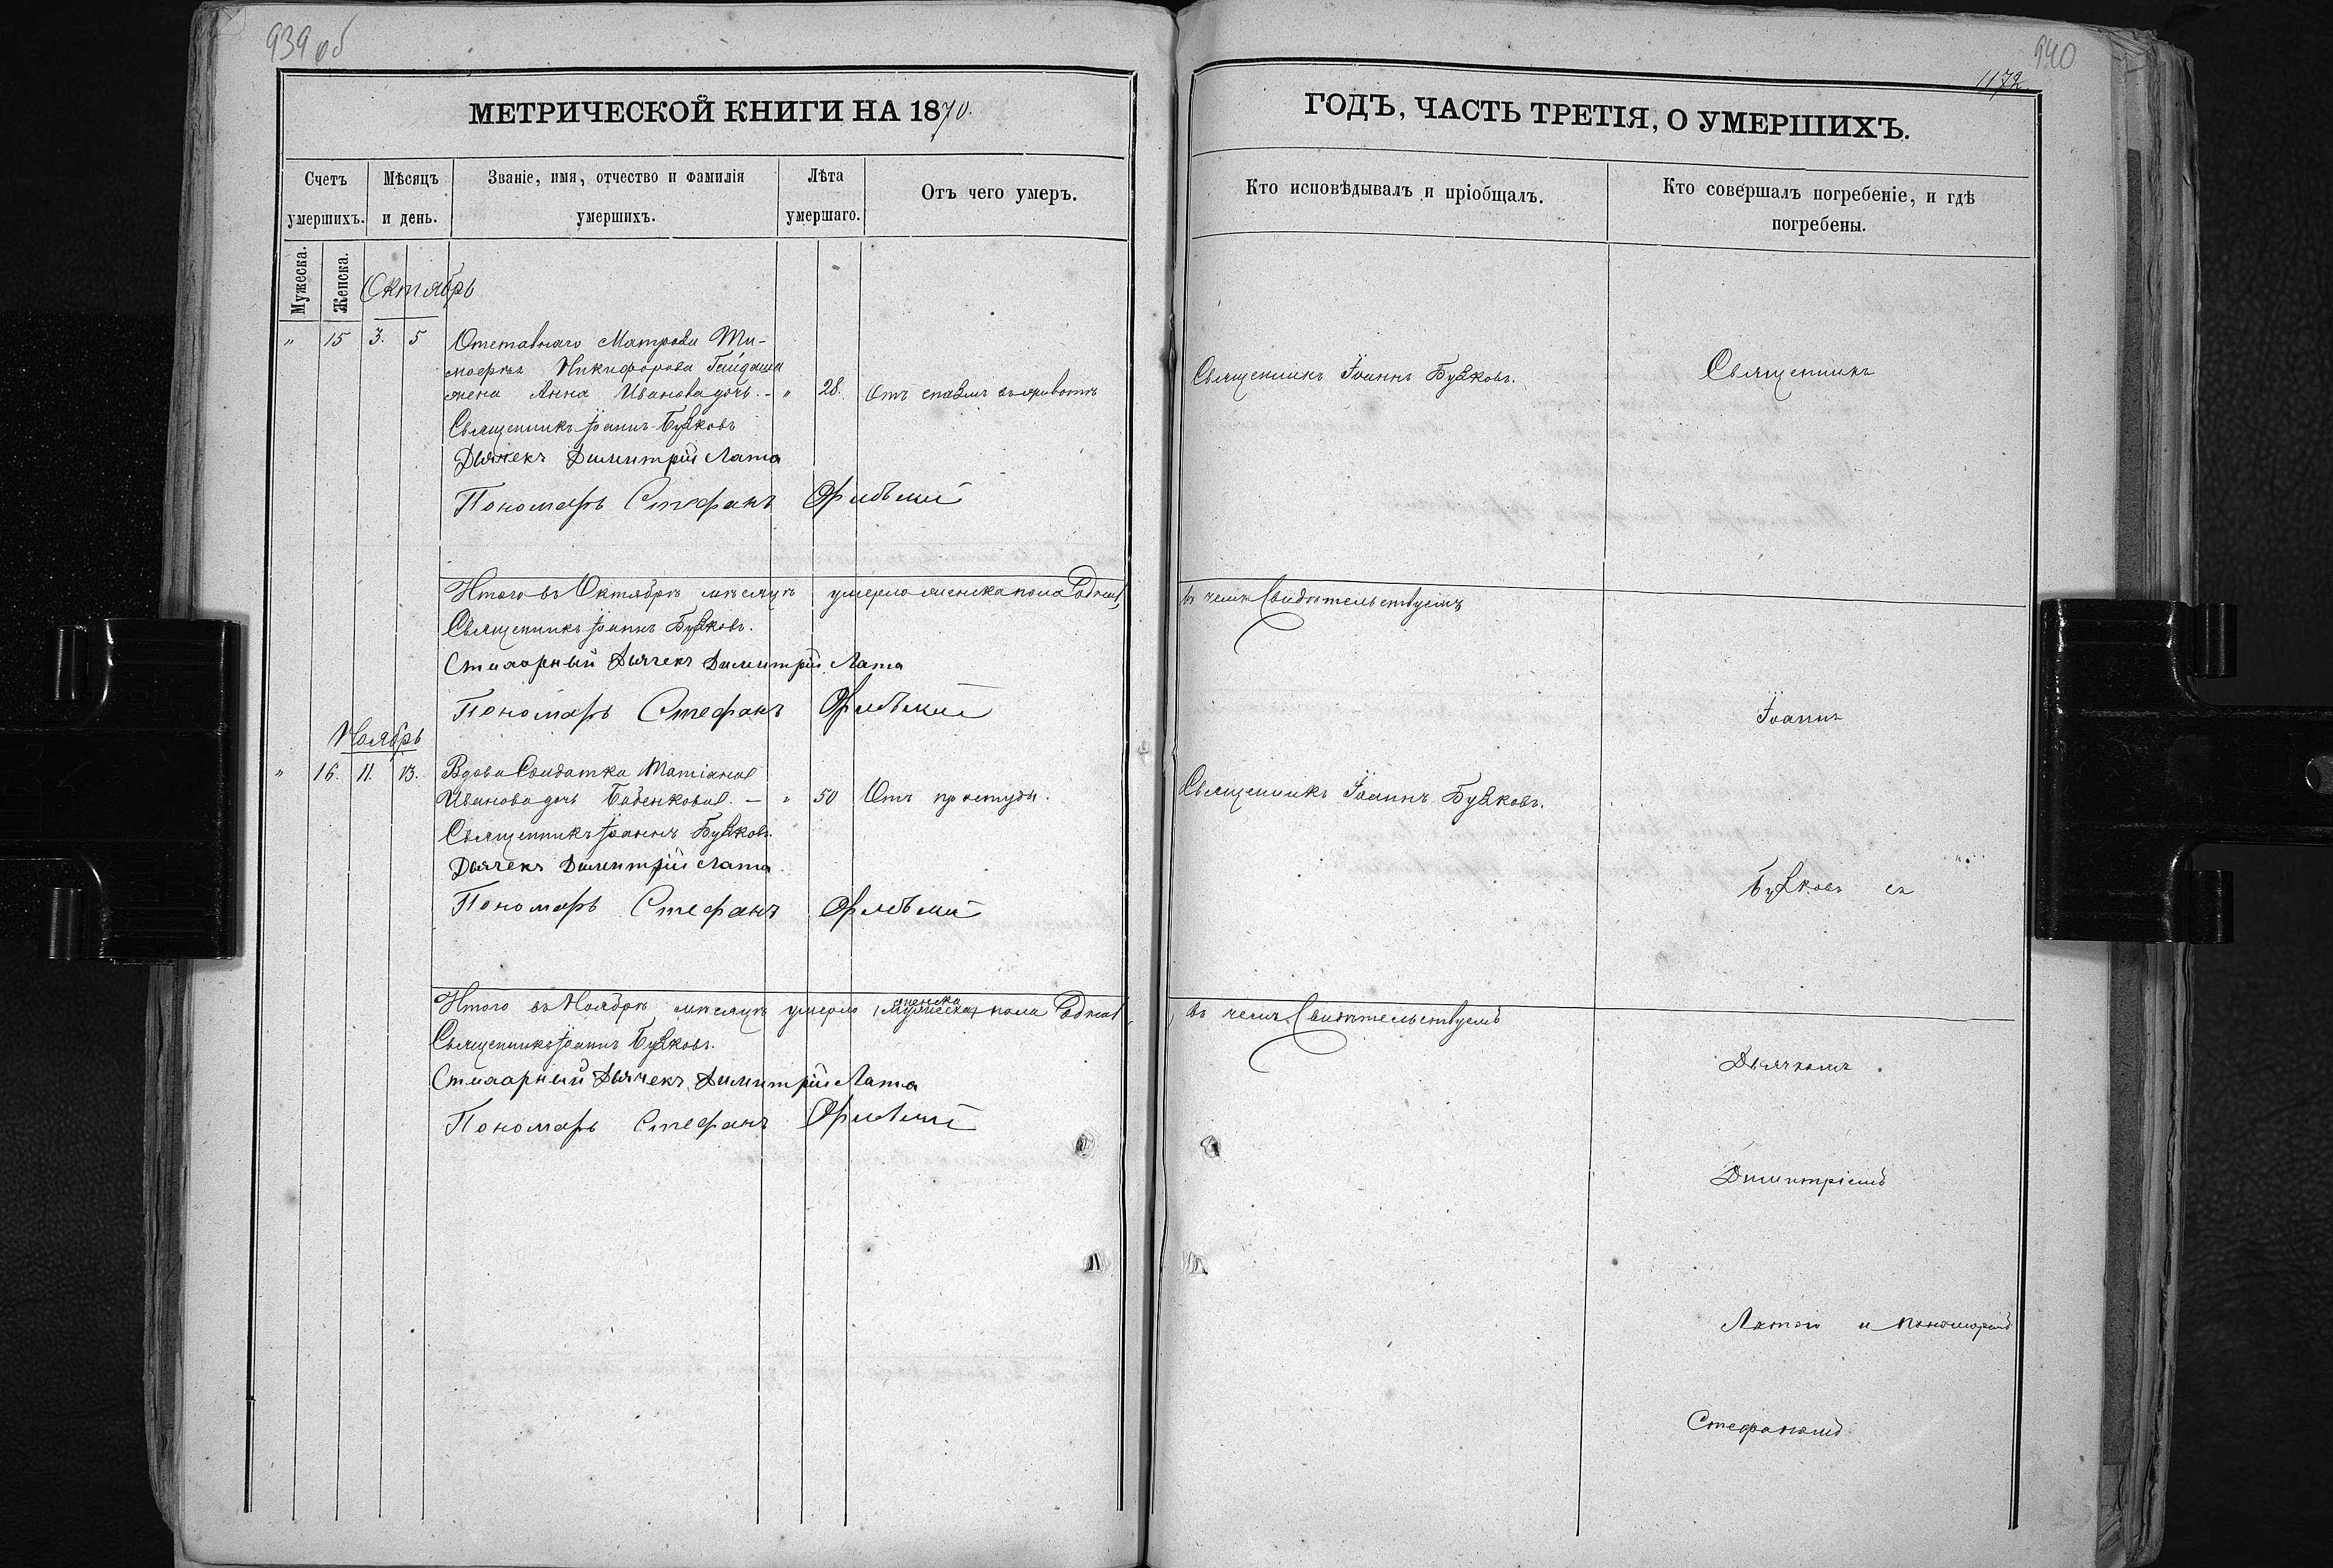 939 об
МЕТРИЧЕСКОЙ КНИГИ НА 1870.
Счетъ умершихъ.
Мѣсяцъ и день.
Званіе, имя, отчество и фамилія умершихъ.
Лѣта умершаго.
Отъ чего умеръ.
Мужеска.
Женска.
Октябрь
" 15 3. 5 Отставнаго Матроса Ти-
моѳея Никифорова Гайдаша
жена Анна Иванова дочь. - " 28. Отъ спазмъ въ животѣ
Священникъ Іоаннъ Бужковъ
Дьячекъ Димитрій Лата
Пономарь Стефанъ
Итого въ Октябрѣ мѣсяцѣ умерло женска пола Одна,
Священникъ Іоаннъ Бужковъ.
Стихарный Дьячекъ Димитрій Лата
Пономарь Стефанъ
Ноябрь
" 16. 11. 13. Вдова Солдатка Татіана
Иванова дочь Бабенкова. - " 50 Отъ простуды.
Священникъ Іоаннъ Бужковъ.
Дьячекъ Димитрій Лата
Пономарь Стефанъ
Итого въ Ноябрѣ мѣсяцѣ умерло (мужеска) женска пола Одна,
Священникъ Іоаннъ Бужковъ.
Стихарный Дьячекъ Димитрій Лата
Пономарь Стефанъ
940
1172
ГОДЪ, ЧАСТЬ ТРЕТІЯ, О УМЕРШИХЪ.
Кто исповѣдывалъ и пріобщалъ.
Кто совершалъ погребеніе, и гдѣ погребены.
Священникъ Іоаннъ Бужковъ.
Священникъ
въ чемъ Свидѣтельствуемъ
Іоаннъ
Священникъ Іоаннъ Бужковъ.
Бужковъ съ
въ чемъ Свидѣтельствуемъ
Дьячкомъ
Димитріемъ
Латою и пономаремъ
Стефаномъ